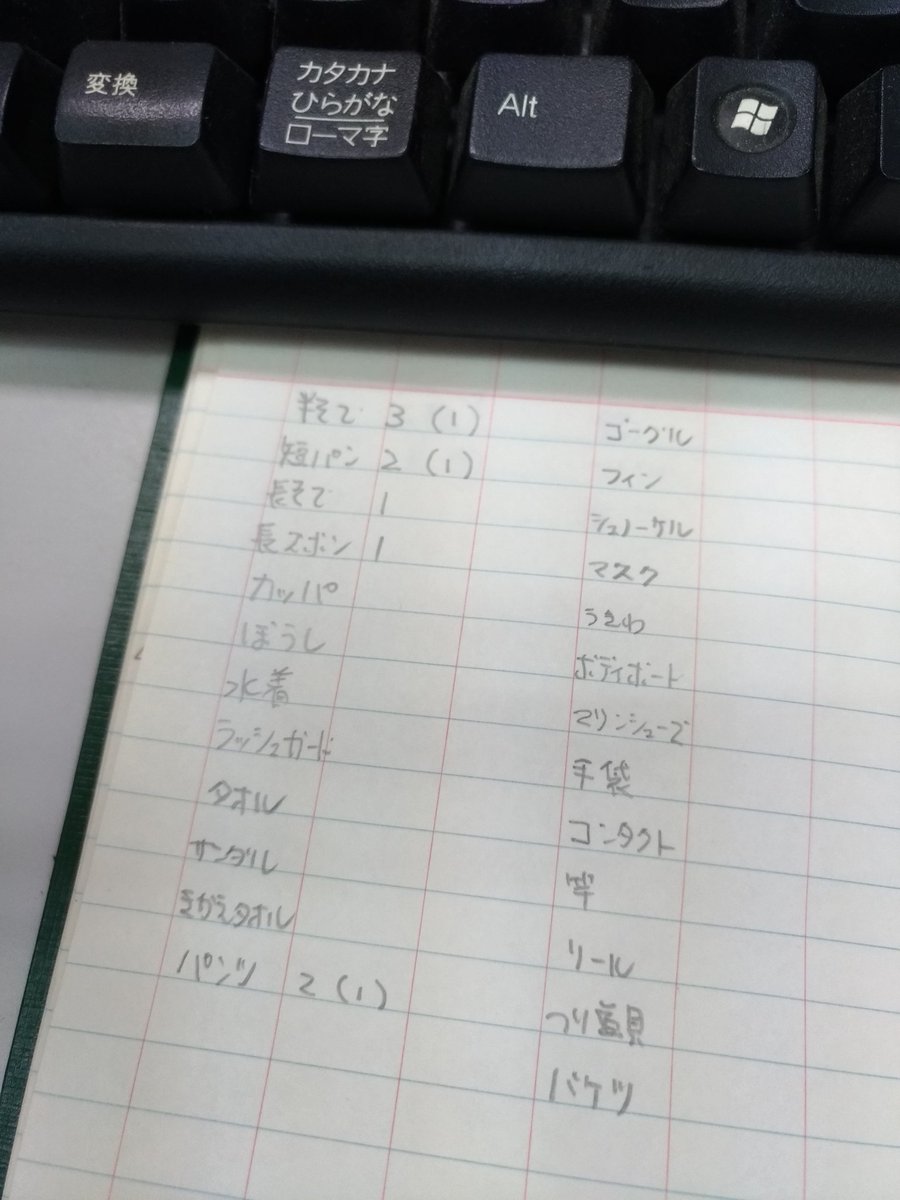 変換
カタカナ
ひらがな
ローマ字
Alt
半そで 3 (1)
短パン 2 (1)
長そで 1
長ズボン 1
カッパ
ぼうし
水着
ラッシュガード
タオル
サンダル
きがえタオル
パンツ 2 (1)
ゴーグル
フィン
シュノーケル
マスク
うきわ
ボディボート
マリンシューズ
手袋
コンタクト
竿
リール
つり道具
バケツ